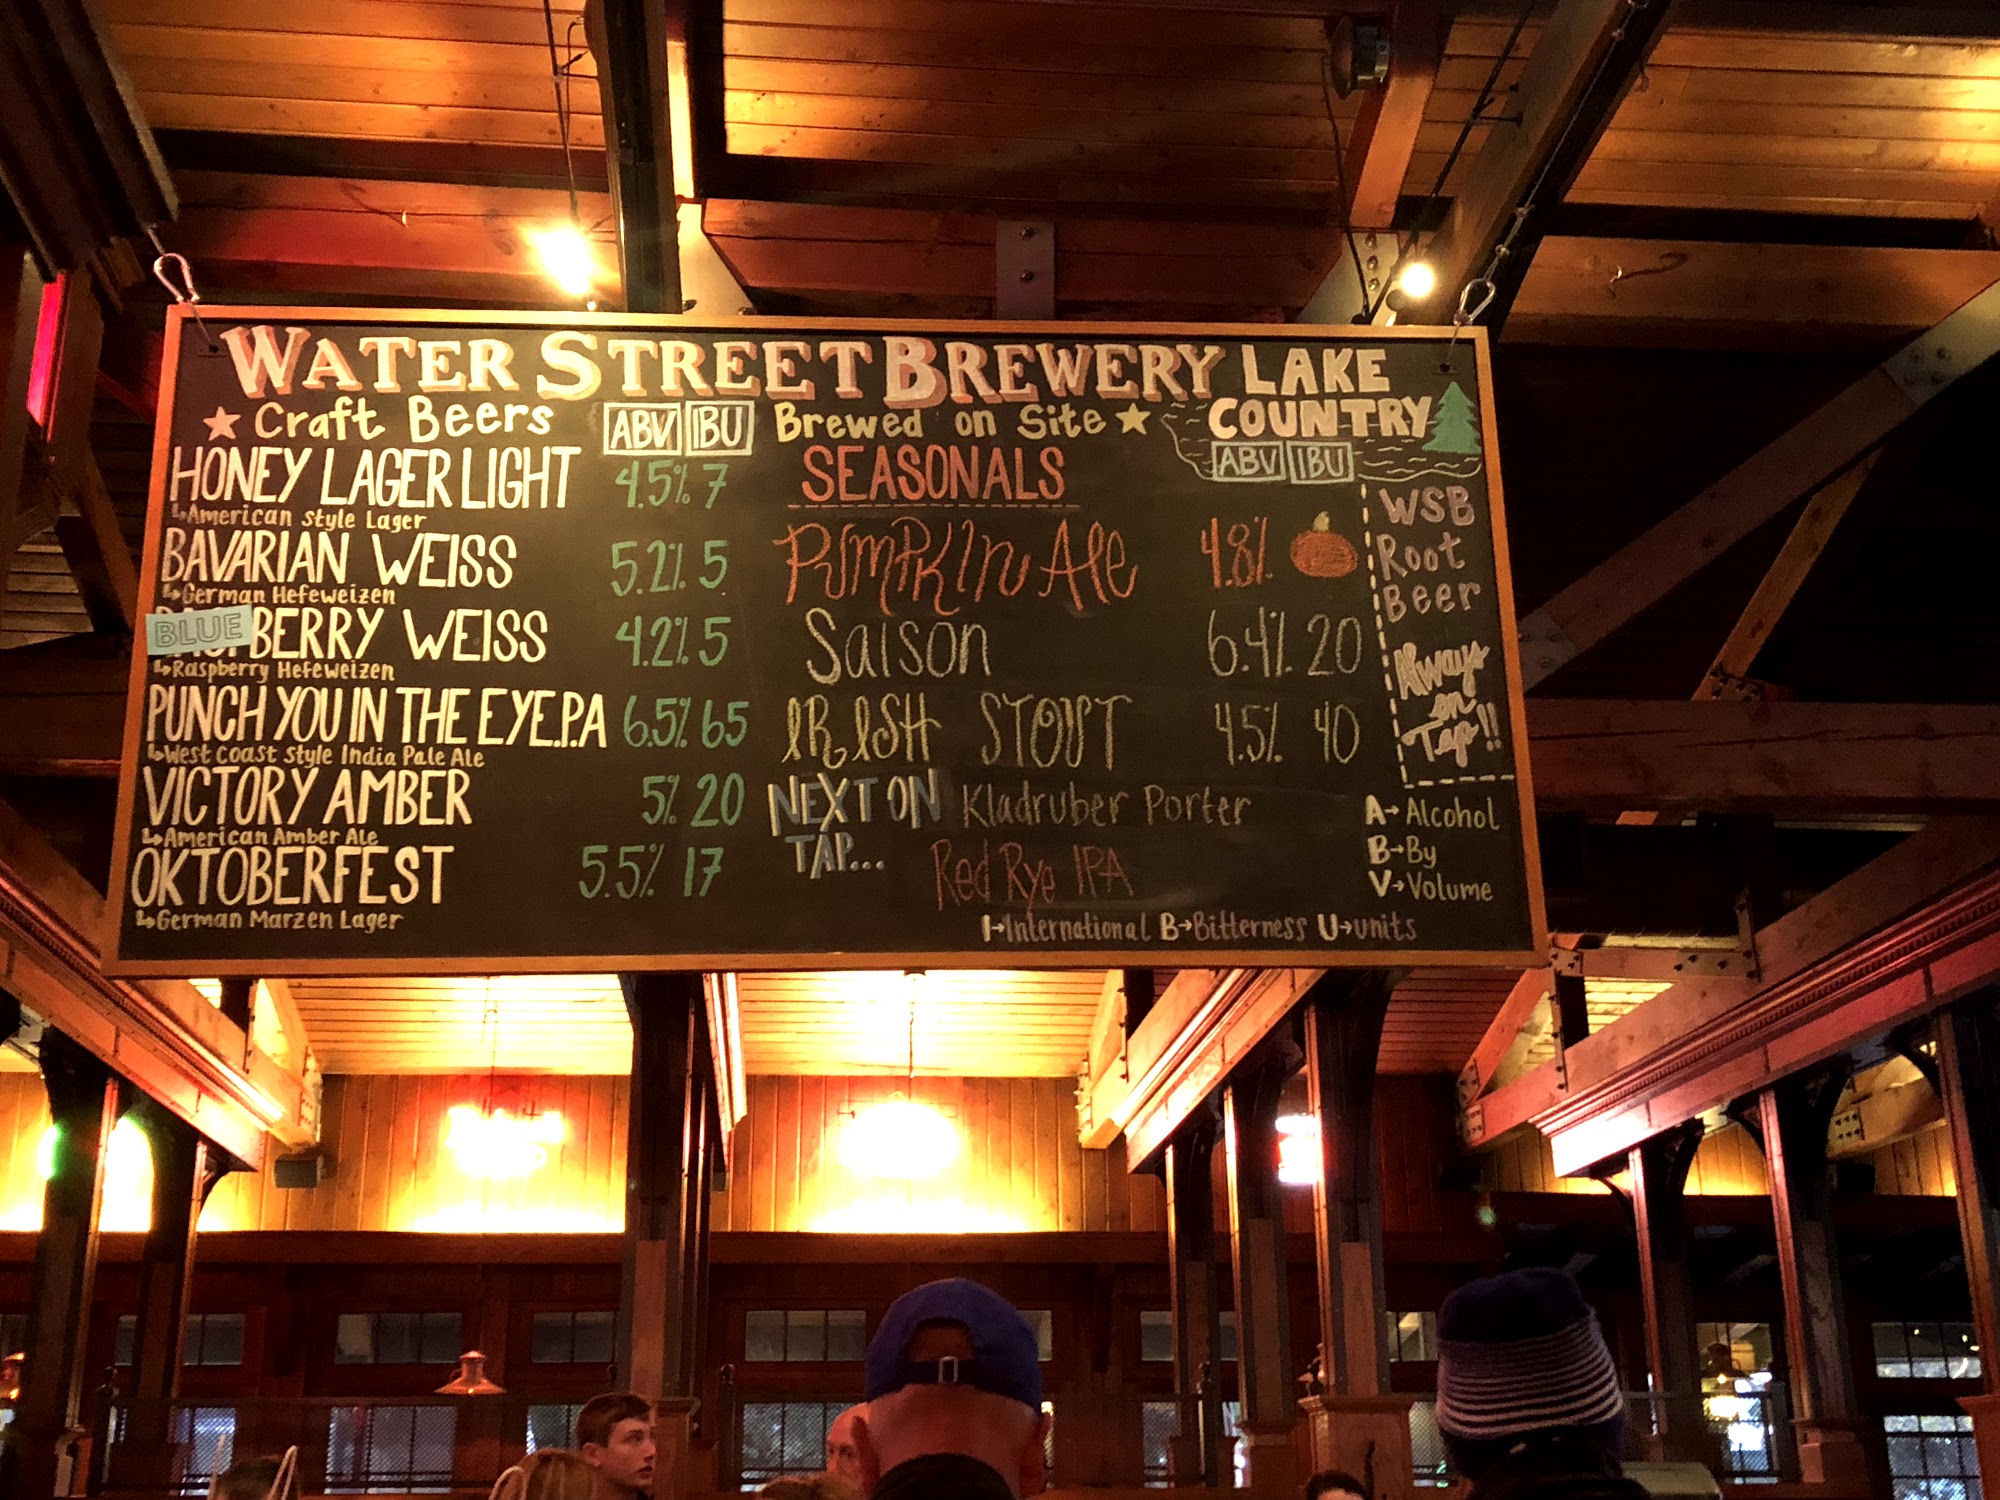 WATER STREET BREWERY LAKE COUNTRY
★ Craft Beers ABV IBU Brewed on Site ★
HONEY LAGER LIGHT 4.5% 7
↳American Style Lager
BAVARIAN WEISS 5.2% 5
↳German Hefeweizen
BLUE BERRY WEISS 4.2% 5
↳Raspberry Hefeweizen
PUNCH YOU IN THE EYE.P.A 6.5% 65
↳West Coast Style India Pale Ale
VICTORY AMBER 5% 20
↳American Amber Ale
OKTOBERFEST 5.5% 17
↳German Marzen Lager
ABV IBU
SEASONALS
PUMPKIN Ale 4.8%
Saison 6.4% 20
IRISH STOUT 4.5% 40
NEXT ON Kladruber Porter
TAP... Red Rye IPA
I→International B→Bitterness U→units
WSB
Root
Beer
Always
on
Tap!!
A→Alcohol
B→By
V→Volume